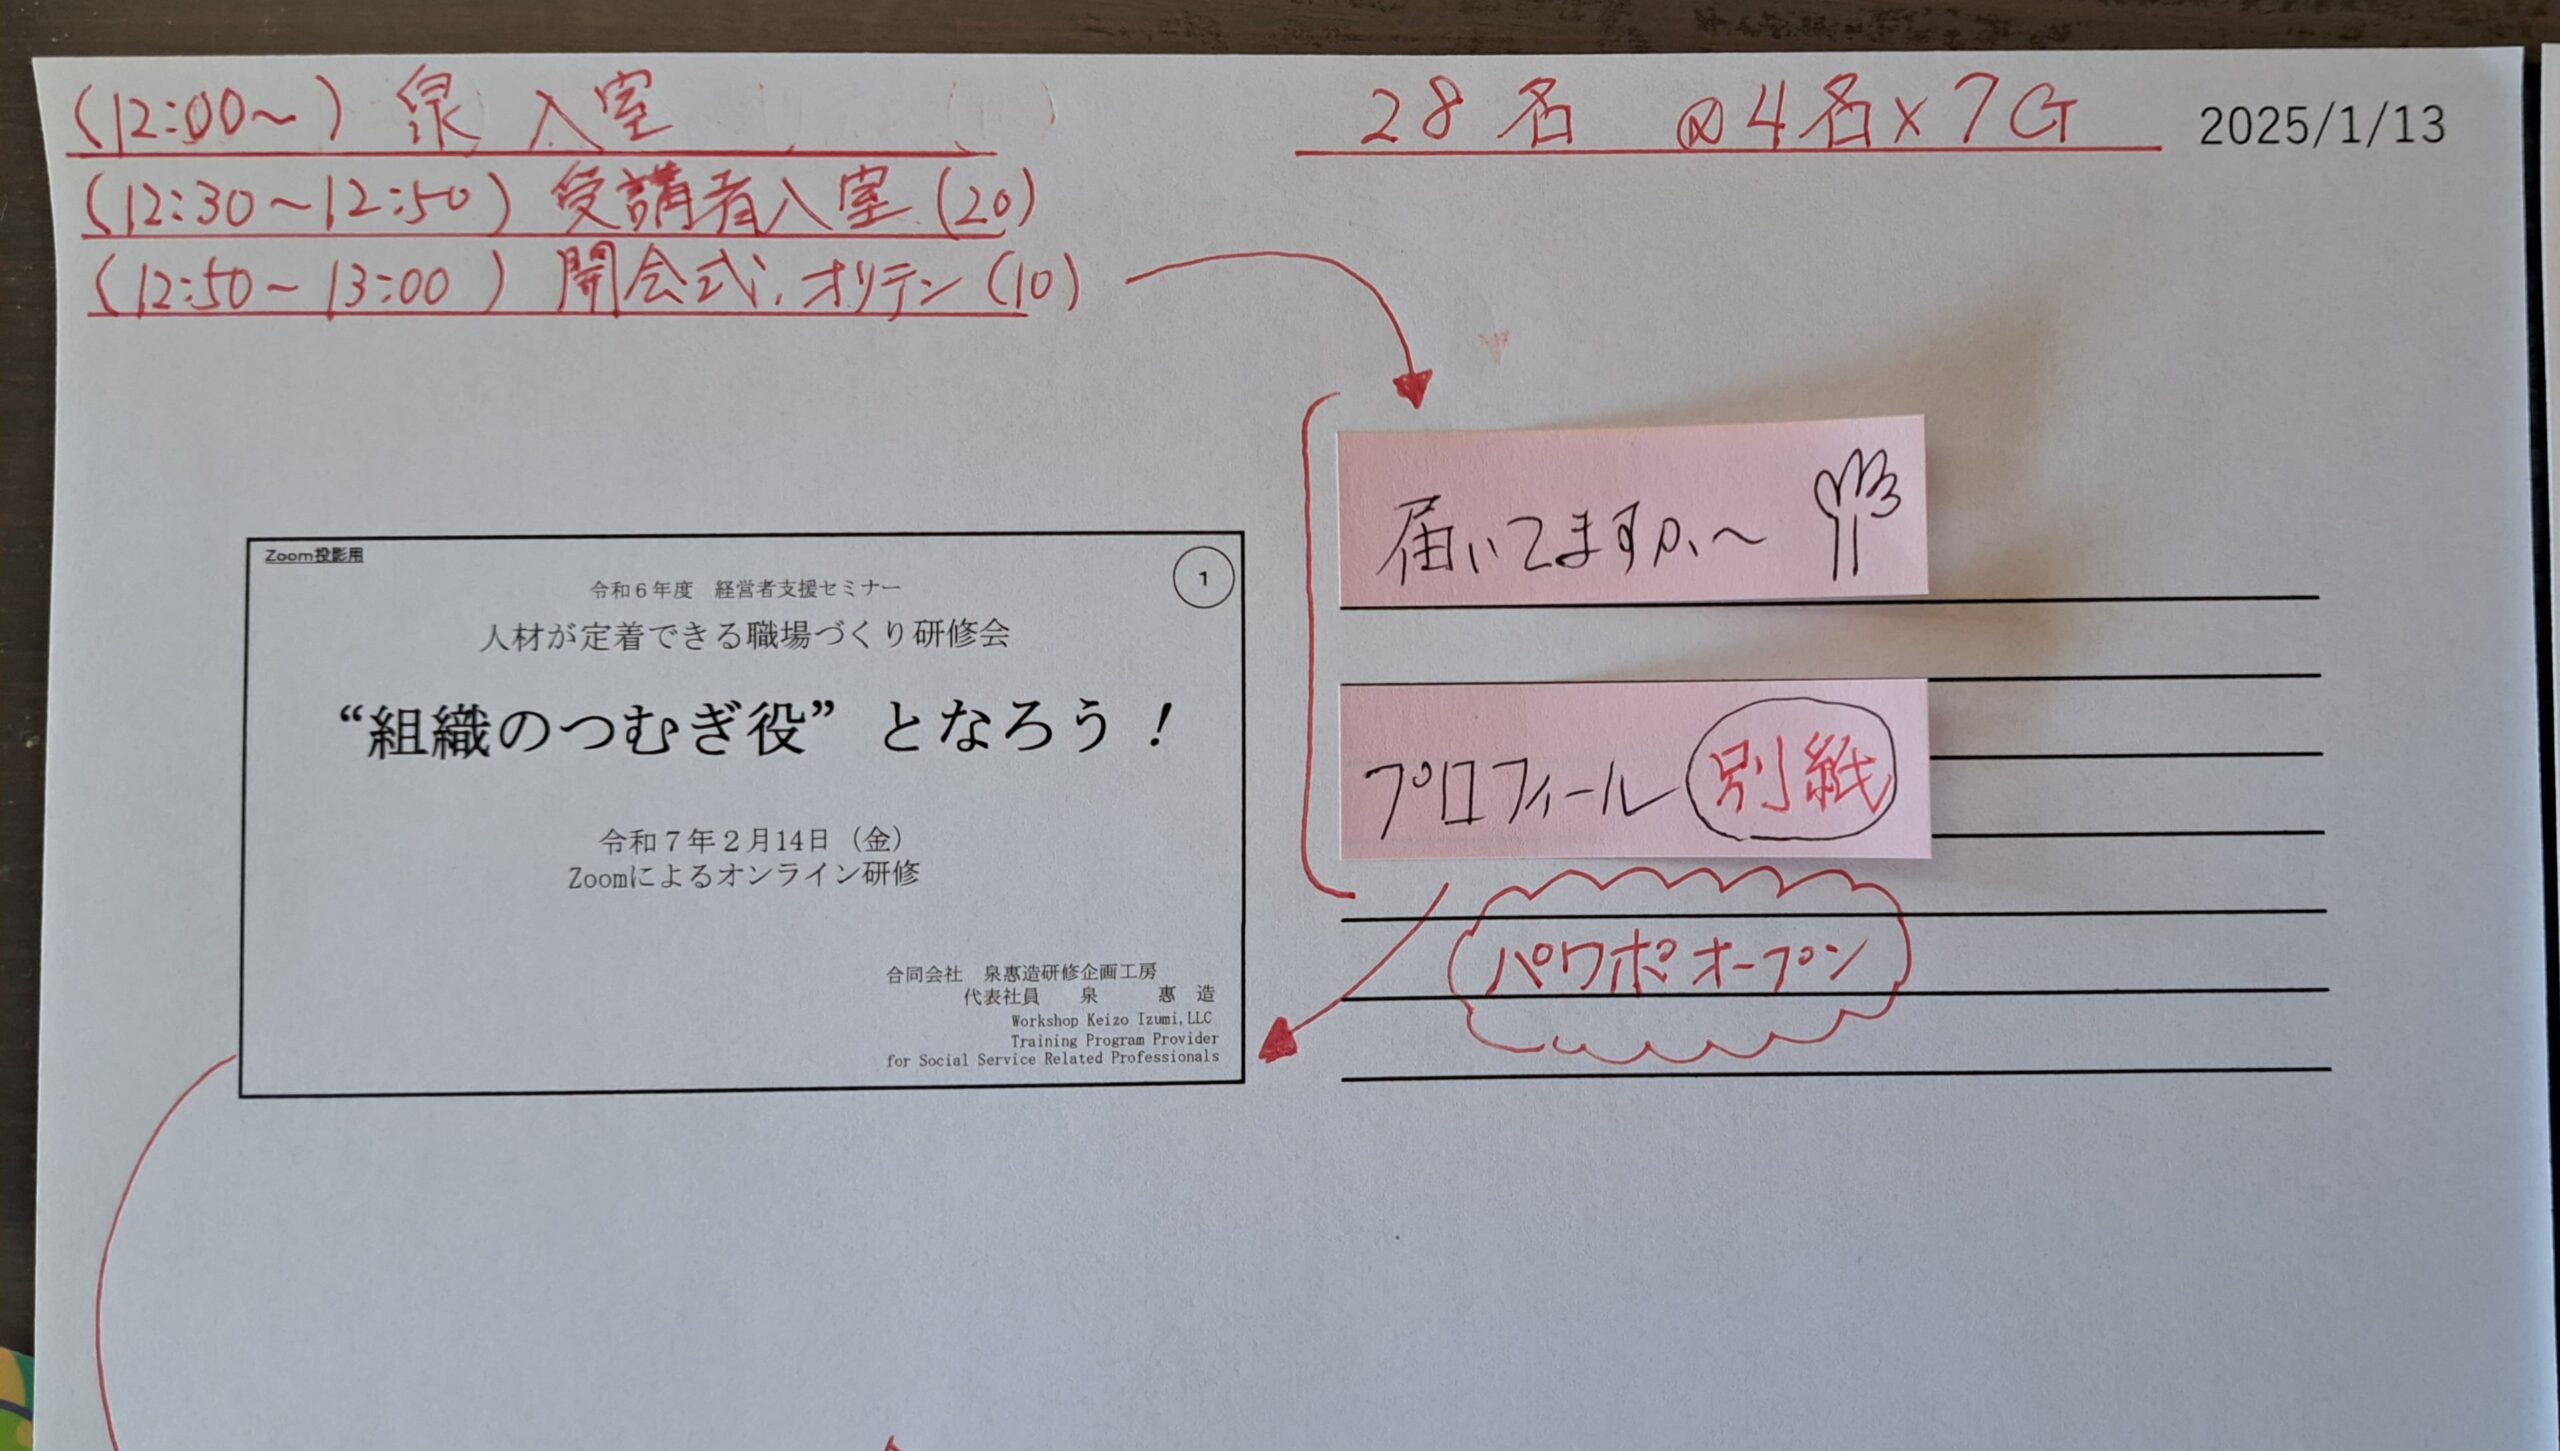 (12:00〜) 泉 入室
28名 @4名×7G
2025/1/13
(12:30〜12:50) 受講者入室 (20)
(12:50〜13:00) 開会式、オリテン (10)
届いてますか〜
Zoom投影用
1
令和６年度　経営者支援セミナー
人材が定着できる職場づくり研修会
“組織のつむぎ役” となろう！
プロフィール 別紙
令和７年２月14日（金）
Zoomによるオンライン研修
パワポオープン
合同会社　泉惠造研修企画工房
代表社員　泉　惠 造
Workshop Keizo Izumi,LLC
Training Program Provider
for Social Service Related Professionals